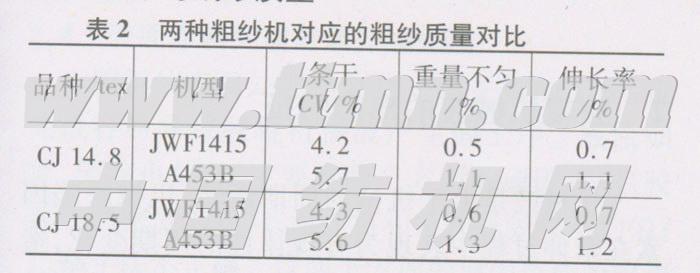 表 2 两种粗纱机对应的粗纱质量对比
品种/tex 机型 条干 重量不匀 伸长率
CV/% /% /%
CJ 14.8 JWF1415 4.2 0.5 0.7
A453B 5.7 1.1 1.1
CJ 18.5 JWF1415 4.3 0.6 0.7
A453B 5.6 1.3 1.2
www.ttmn.com
中国纺机网